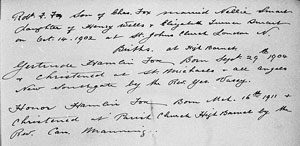 Robt F. Fox Son of Chas. Fox married Nellie Smart
daughter of Henry Wells & Elizabeth Smart
on Oct. 14. 1902 at St. John Church London N
Births. at High Barnet
Gertrude Hamlin Fox Born Sept. 29th 1904
& Christened at St. Michaels & all angels
New Southgate by the Rev.
Honor Hamlin Fox Born Mch. 16th 1911 &
Christened at Parish Church High Barnet by the
Rev. Can Manning